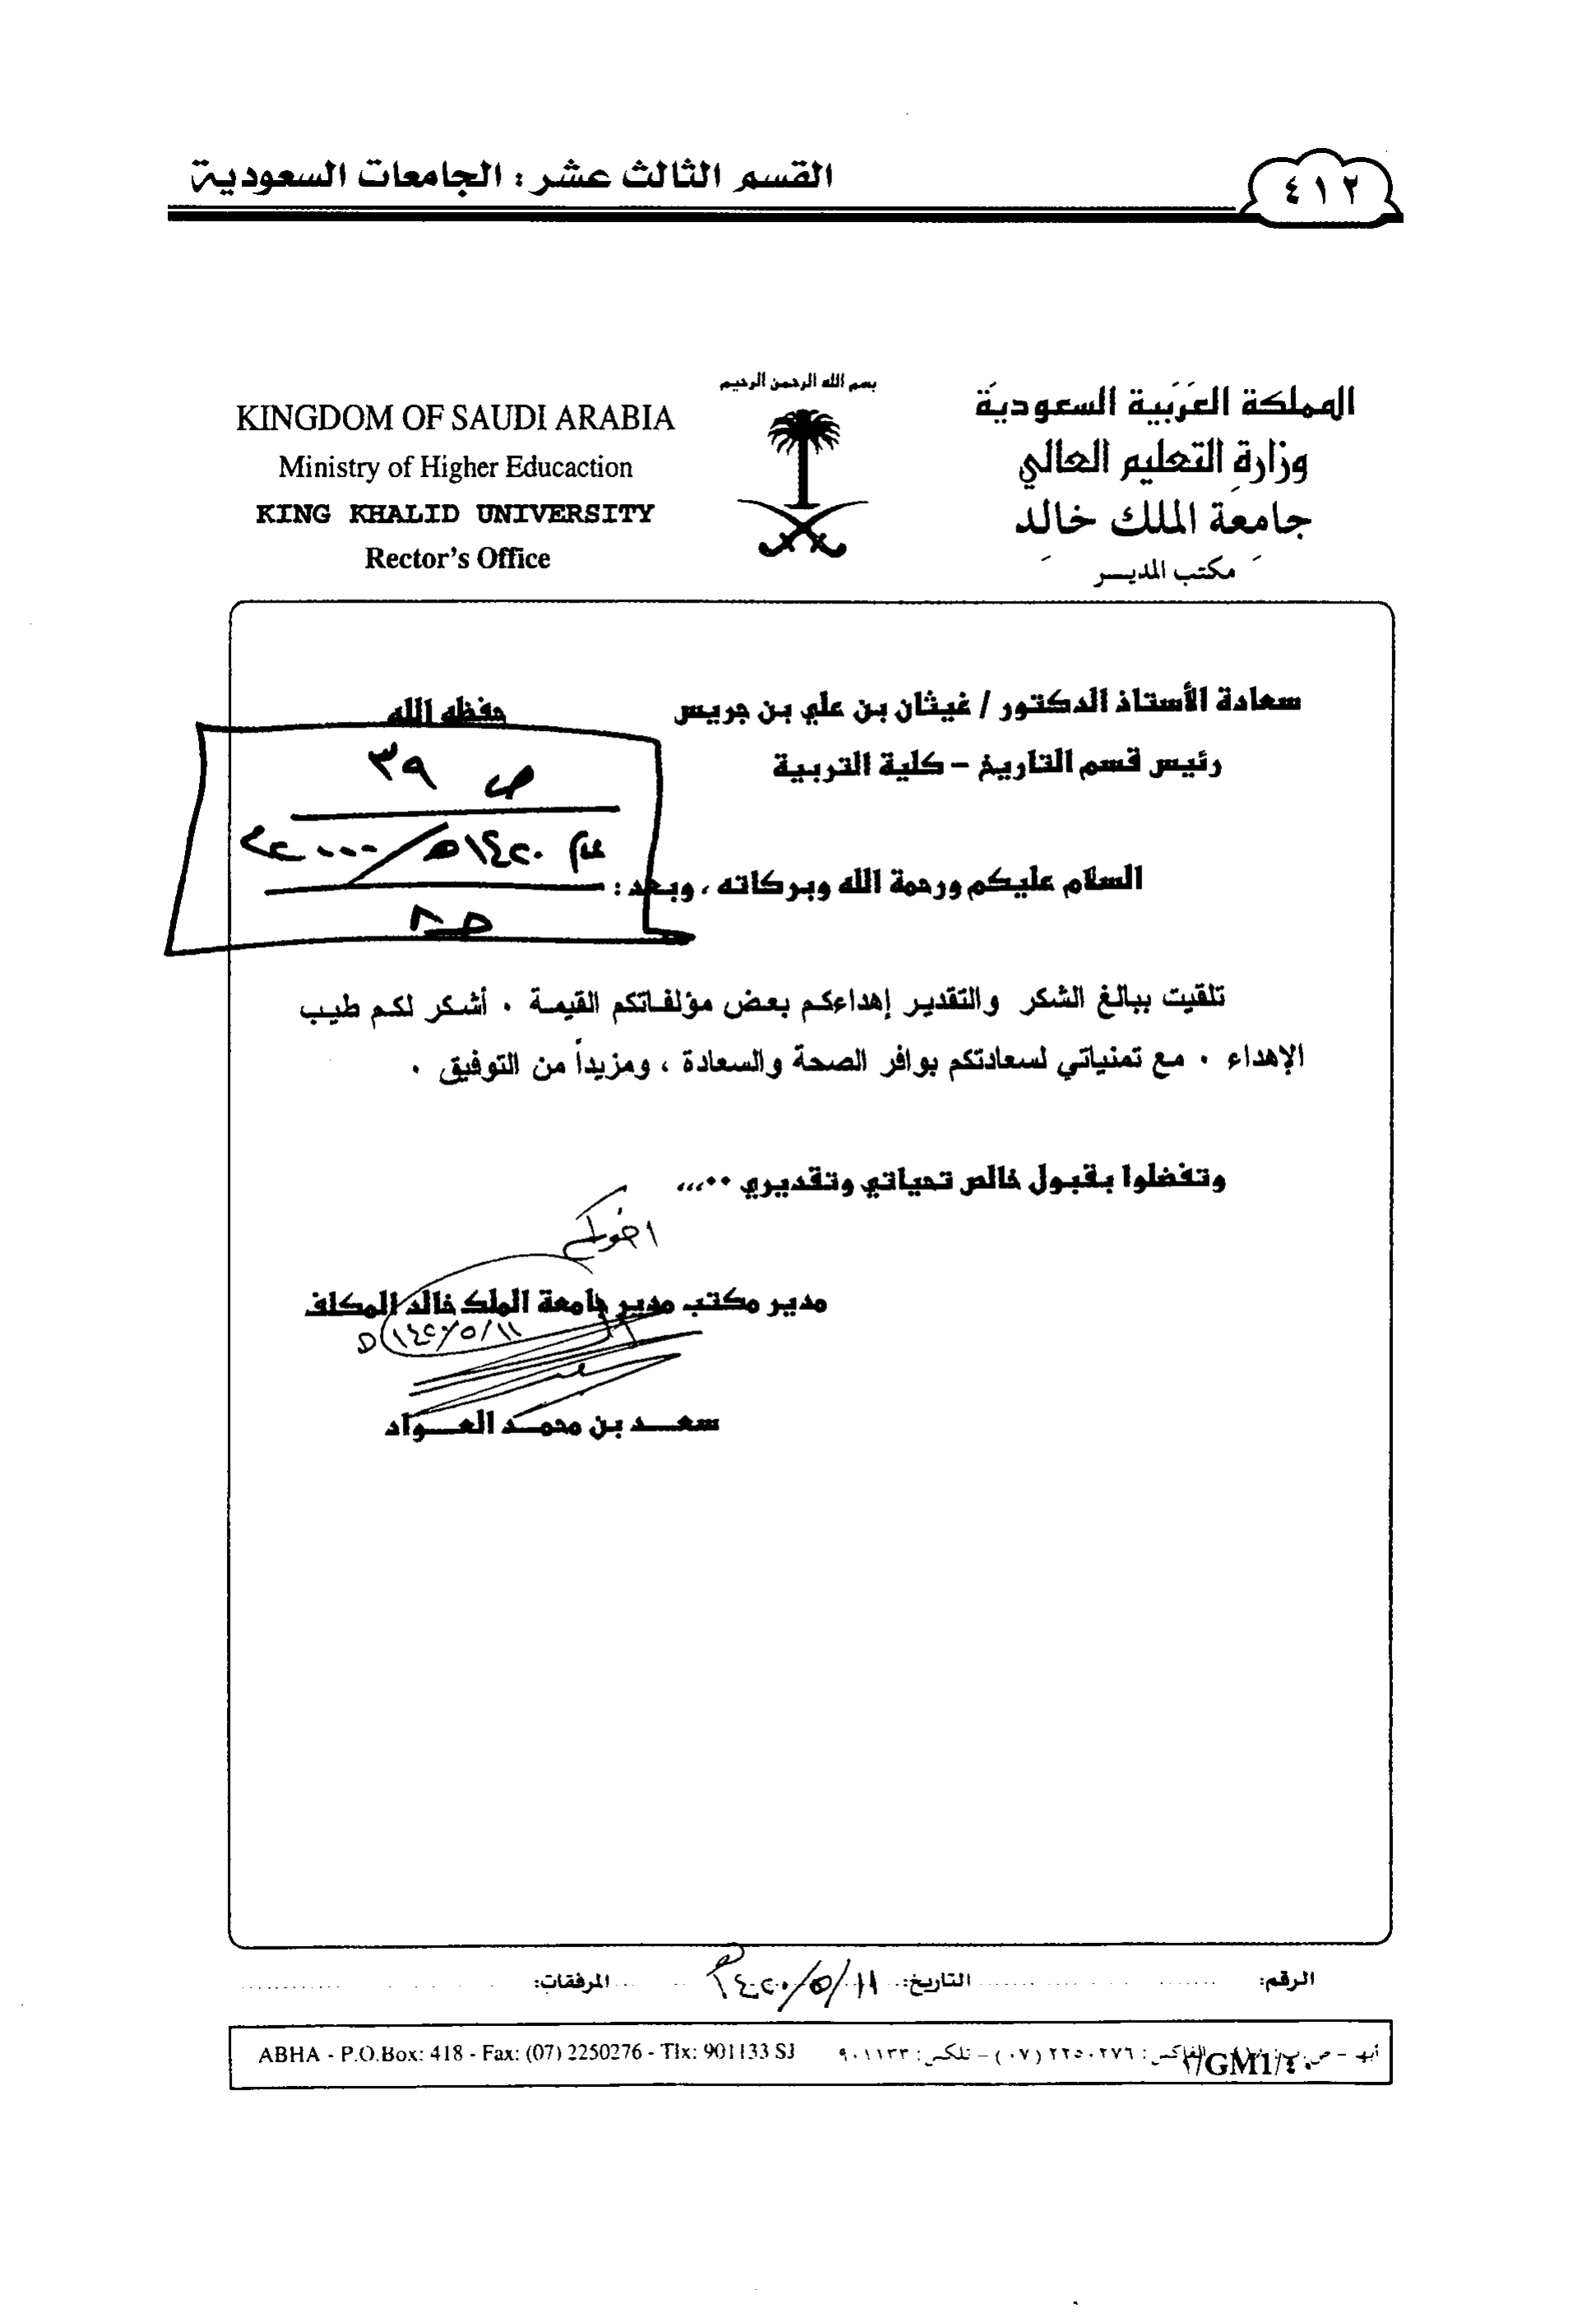 القسم الثالث عشر : الجامعات السعودية
٤١٢
بسم الله الرحمن الرحيم
المملكة العربية السعودية
وزارة التعليم العالي
جامعة الملك خالد
مكتب المديـر
KINGDOM OF SAUDI ARABIA
Ministry of Higher Educaction
KING KHALID UNIVERSITY
Rector's Office
سعادة الأستاذ الدكتور / غيثان بن علي بن جريس حفظه الله
رئيس قسم التاريخ - كلية التربية
ص ٣٩
١٤٢٠هـ/٢٠٠٠م
السلام عليكم ورحمة الله وبركاته ، وبعد :
تلقيت ببالغ الشكر والتقدير إهداءكم بعض مؤلفاتكم القيمة . أشكر لكم طيب
الإهداء . مع تمنياتي لسعادتكم بوافر الصحة والسعادة ، ومزيداً من التوفيق .
وتفضلوا بقبول خالص تحياتي وتقديري ..,,,
اخوكم
مدير مكتب مدير جامعة الملك خالد المكلف
١٤٢٠/٥/١١هـ
سعـــد بن محمـد العـــواد
الرقم: التاريخ: ١٤٢٠/٥/١١هـ المرفقات:
ABHA - P.O.Box: 418 - Fax: (07) 2250276 - Tlx: 901133 SJ
أبها - ص.ب: الفاكس: ٢٢٥٠٢٧٦ (٠٧) - تلكس: ٩٠١١٣٣
GM1/٤٠